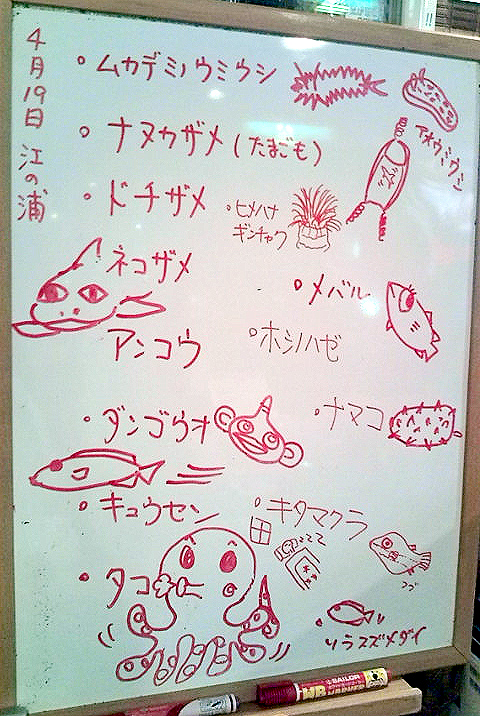 4月19日 江の浦
・ムカデミノウミウシ
アオウミウシ
・ナヌカザメ(たまごも)
・ドチザメ
・ヒメハナ
ギンチャク
ネコザメ
・メバル
アンコウ
・ホシノハゼ
・ダンゴウオ
・ナマコ
・キュウセン
・キタマクラ
zzz
フグ
・タコ
・ソラスズメダイ
SAILOR